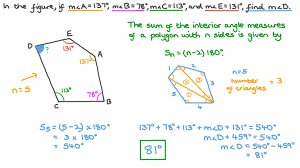 In the figure, if m∠A=137°, m∠B=78°, m∠C=113°, and m∠E=131°, find m∠D.
The sum of the interior angle measures
of a polygon with n sides is given by
Sₙ = (n-2) 180°
E
D
?
131°
A
137°
n=5
113°
78°
C
B
1
2
3
4
5
n=5
number of triangles = 3
S₅ = (5-2) × 180°
= 3 × 180°
= 540°
137° + 78° + 113° + m∠D + 131° = 540°
m∠D + 459° = 540°
m∠D = 540° - 459°
= 81°
81°